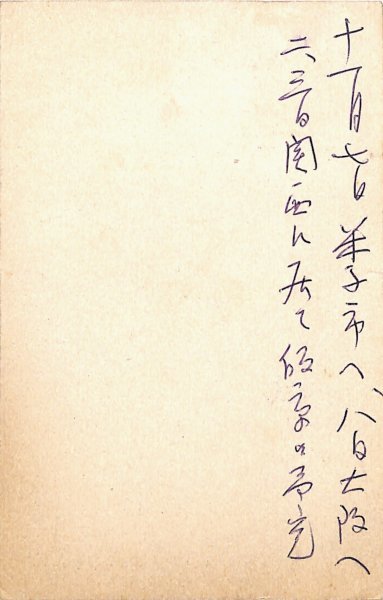 十一月七日米子市へ、八日大阪へ
二、三日関西に居て帰京の予定